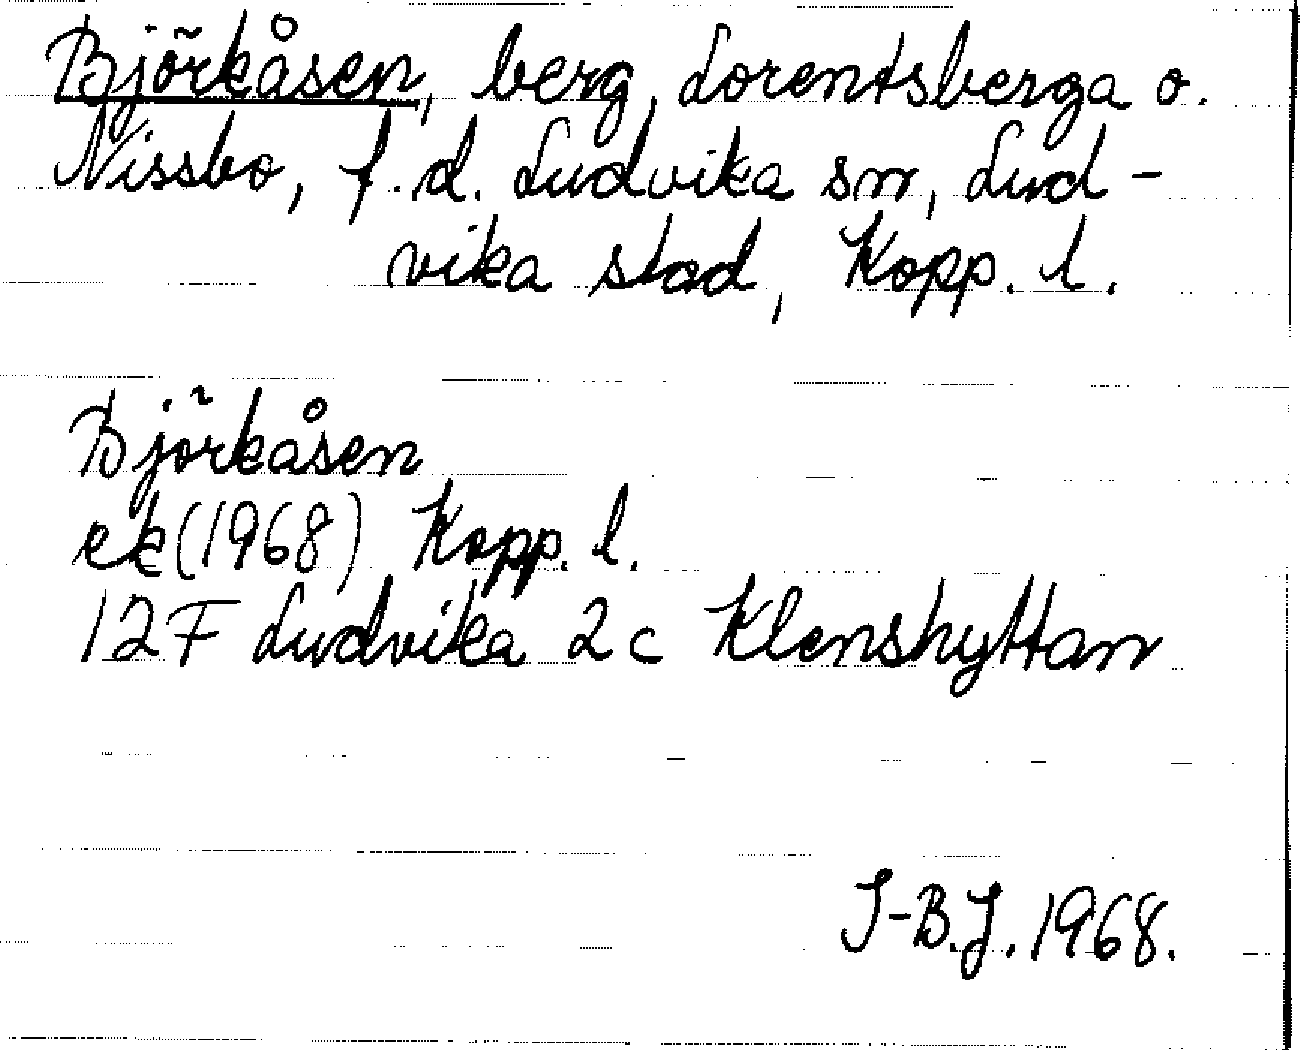 Björkåsen, berg, Lorentsberga o.
Nissbo, f.d. Ludvika sn, Lud-
vika stad, Kopp. l.
Björkåsen
ek(1968) Kopp. l.
12F Ludvika 2c Klenshyttan
I-B.J. 1968.